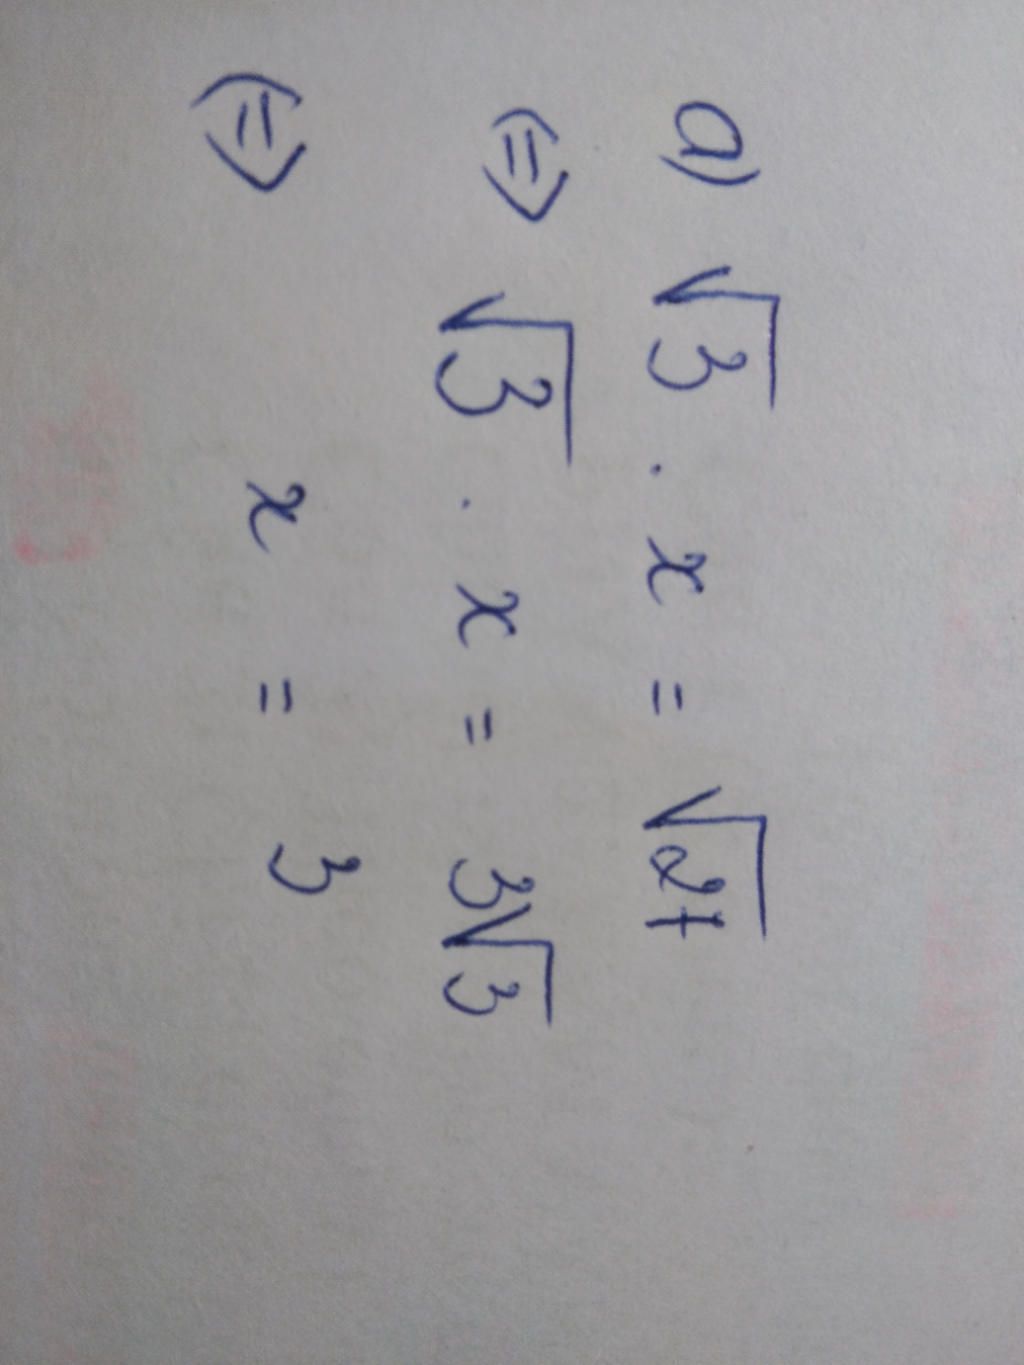 a) √3 . x = √27
⇔ √3 . x = 3√3
⇔ x = 3